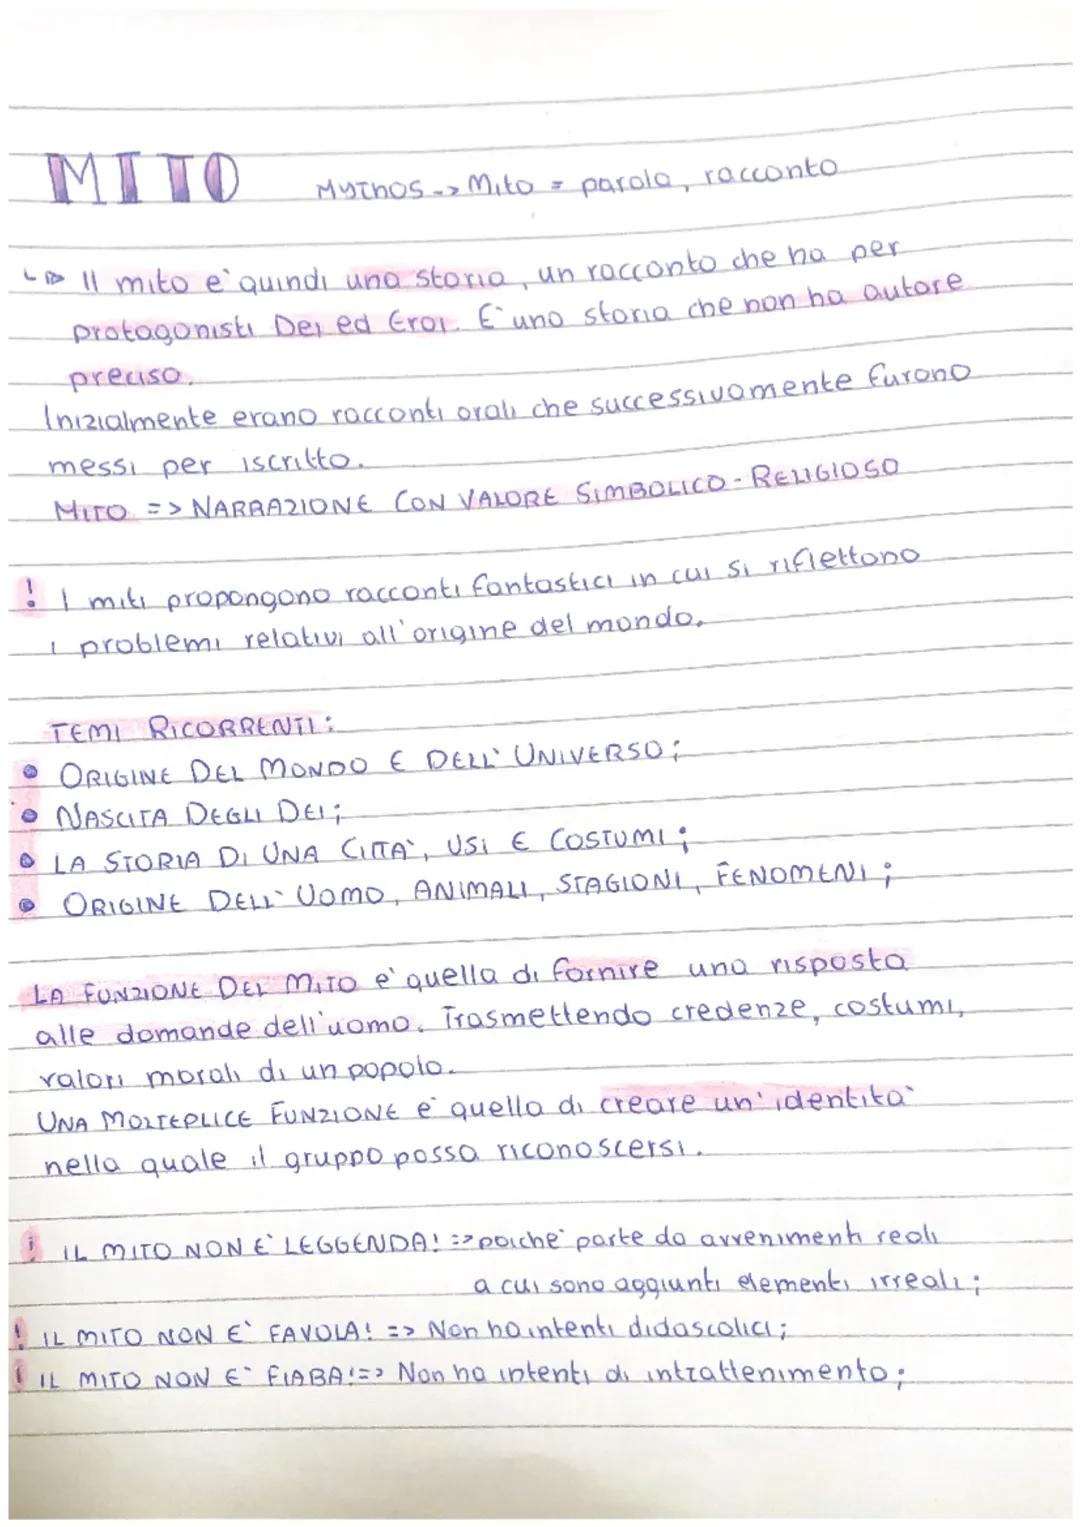 MITO Mythos --> Mito = parola, racconto
↳ Il mito e' quindi una storia, un racconto che ha per
protagonisti Dei ed Eroi. E' una storia che non ha autore
preciso.
Inizialmente erano racconti orali che successivamente furono
messi per iscritto.
MITO => NARRAZIONE CON VALORE SIMBOLICO - RELIGIOSO
! I miti propongono racconti fantastici in cui si riflettono
i problemi relativi all'origine del mondo.
TEMI RICORRENTI:
• ORIGINE DEL MONDO E DELL' UNIVERSO;
• NASCITA DEGLI DEI;
• LA STORIA DI UNA CITTA', USI E COSTUMI;
• ORIGINE DELL' UOMO, ANIMALI, STAGIONI, FENOMENI;
LA FUNZIONE DEL MITO e' quella di fornire una risposta
alle domande dell'uomo. Trasmettendo credenze, costumi,
valori morali di un popolo.
UNA MOLTEPLICE FUNZIONE e' quella di creare un' identita'
nella quale il gruppo possa riconoscersi.
! IL MITO NON E' LEGGENDA! => poiche' parte da avvenimenti reali
a cui sono aggiunti elementi irreali;
! IL MITO NON E' FAVOLA! => Non ha intenti didascolici;
! IL MITO NON E' FIABA! => Non ha intenti di intrattenimento;